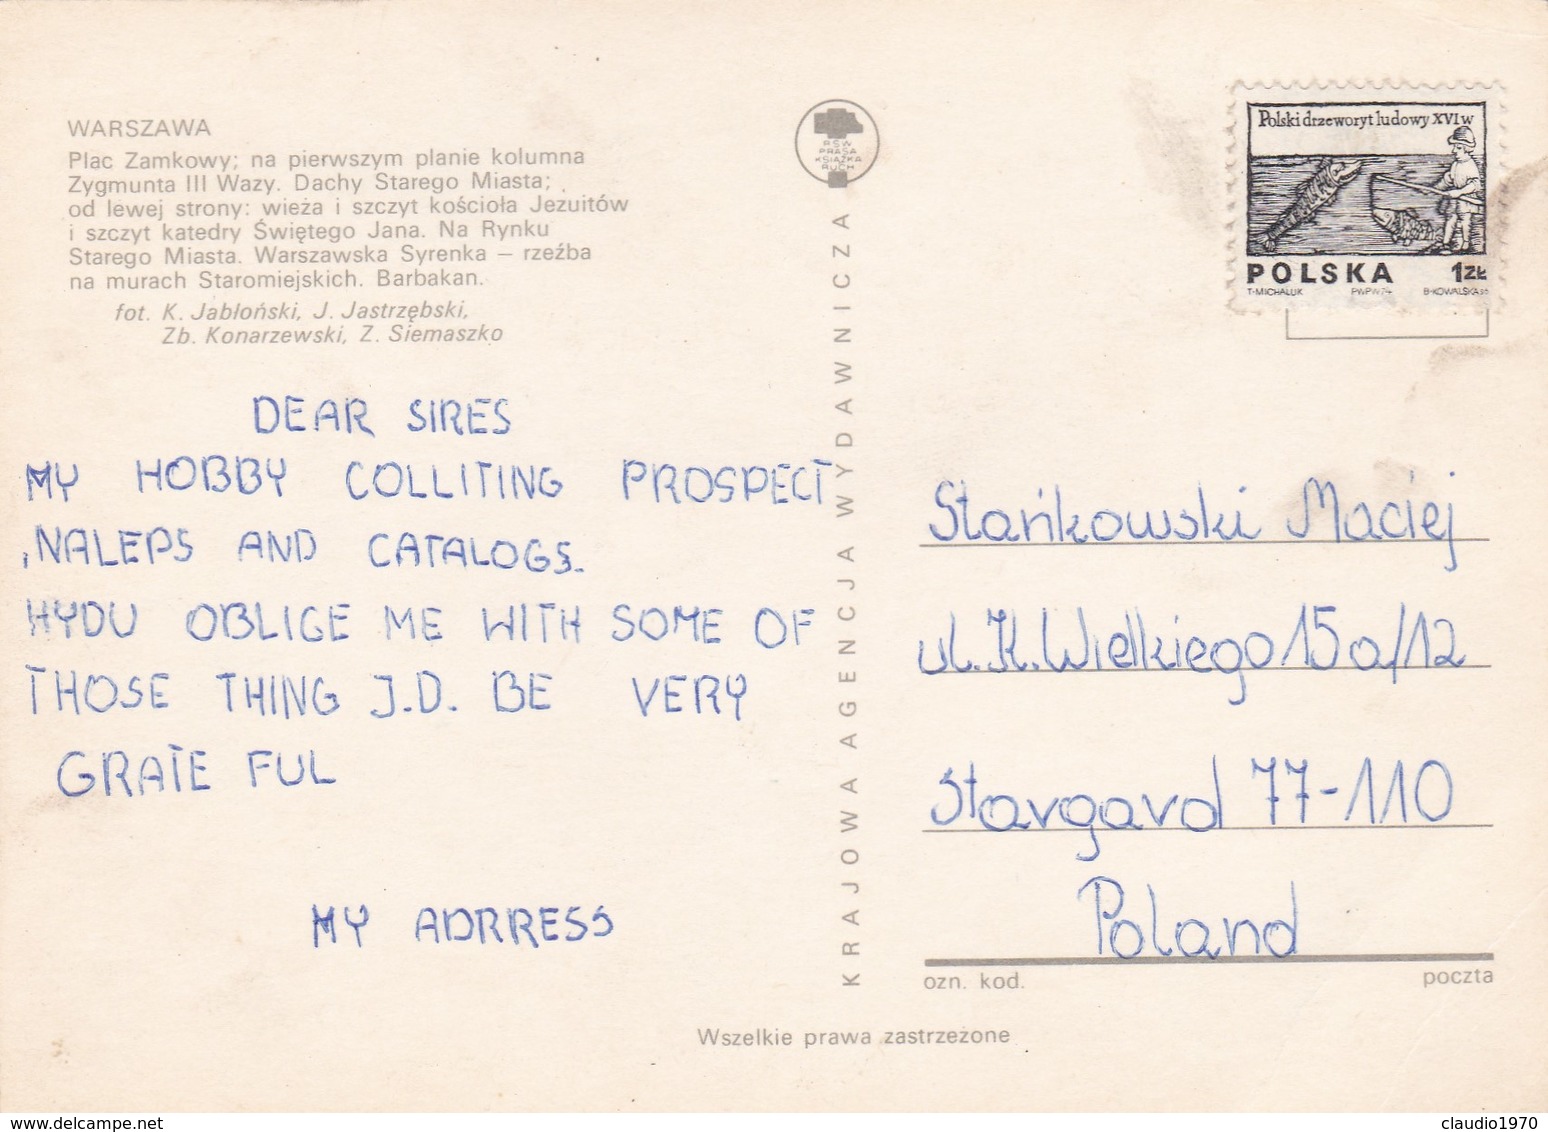 WARSZAWA
Plac Zamkowy; na pierwszym planie kolumna
Zygmunta III Wazy. Dachy Starego Miasta;
od lewej strony: wieża i szczyt kościoła Jezuitów
i szczyt katedry Świętego Jana. Na Rynku
Starego Miasta. Warszawska Syrenka – rzeźba
na murach Staromiejskich. Barbakan.
fot. K. Jabłoński, J. Jastrzębski,
Zb. Konarzewski, Z. Siemaszko
DEAR SIRES
MY HOBBY COLLITING PROSPECT
,NALEPS AND CATALOGS.
HYDU OBLIGE ME WITH SOME OF
THOSE THING J.D. BE VERY
GRATE FUL
MY ADRRESS
RSW
PRASA
KSIĄŻKA
RUCH
KRAJOWA AGENCJA WYDAWNICZA
Polski drzeworyt ludowy XVI w
POLSKA 1ZŁ
T·MICHALUK PWPW74 B·KOWALSKA sc
Stańkowski Maciej
ul. K. Wielkiego 15a/12
Stargard 77-110
Poland
ozn. kod. poczta
Wszelkie prawa zastrzeżone
delcampe.net
claudio1970